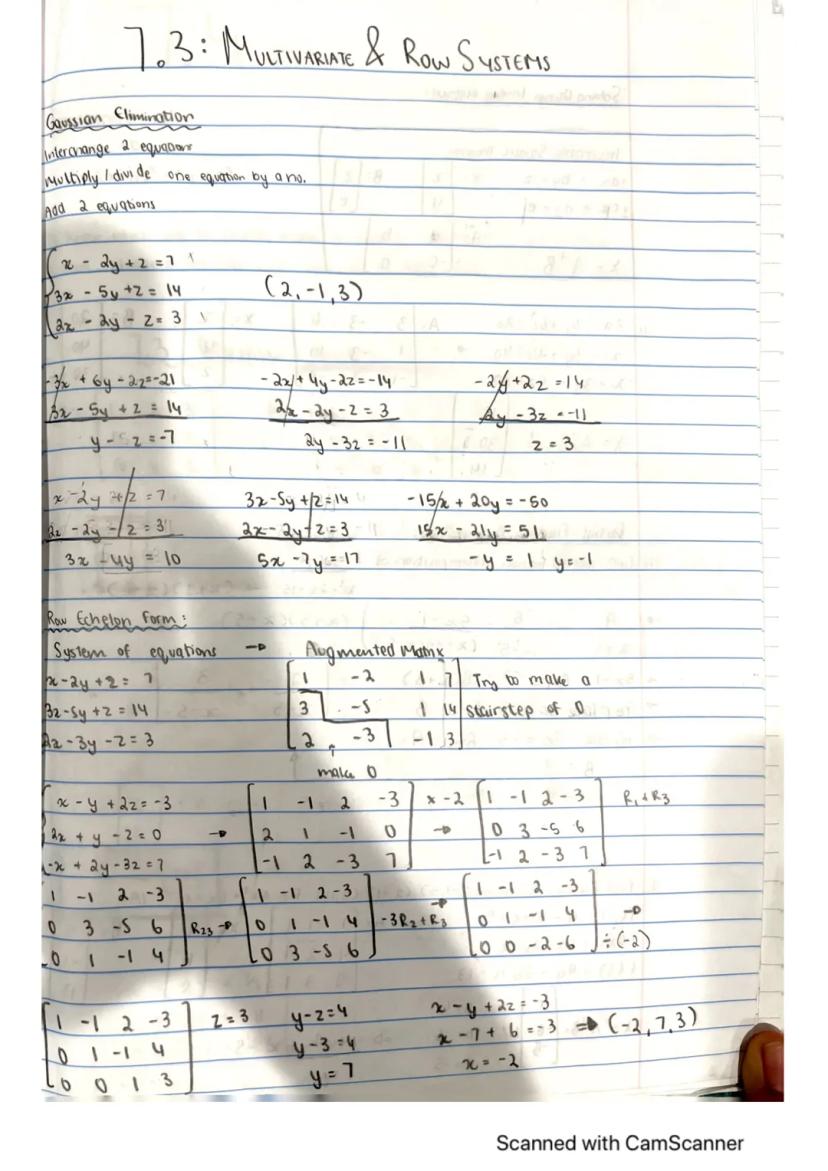 7.3: MULTIVARIATE & ROW SYSTEMS
Gaussian Elimination
Interchange 2 equations
Multiply / divide one equation by a no.
Add 2 equations
x - 2y + z = 7
3x - 5y + z = 14 (2, -1, 3)
2x - 2y - z = 3
-3x + 6y - 3z = -21 -2x + 4y - 2z = -14 -2y + 2z = 14
3x - 5y + z = 14 2x - 2y - z = 3 2y - 3z = -11
y - 2z = -7 2y - 3z = -11 z = 3
x - 2y + z = 7 3x - 5y + z = 14 -15x + 20y = -50
2x - 2y - z = 3 2x - 2y - z = 3 15x - 21y = 51
3x - 4y = 10 5x - 7y = 17 -y = 1 y = -1
Row Echelon Form:
System of equations → Augmented Matrix
x - 2y + z = 7 1 -2 1 7 Try to make a
3x - 5y + z = 14 3 -5 1 14 stairstep of 0
2x - 3y - z = 3 2 -3 -1 3
make 0
x - y + 2z = -3 1 -1 2 -3 x -2 1 -1 2 -3 R1 + R3
2x + y - z = 0 → 2 1 -1 0 → 0 3 -5 6
-x + 2y - 3z = 7 -1 2 -3 7 -1 2 -3 7
1 -1 2 -3 1 -1 2 -3 → 1 -1 2 -3
0 3 -5 6 R23 → 0 1 -1 4 -3R2 + R3 0 1 -1 4 →
0 1 -1 4 0 3 -5 6 0 0 -2 -6 ÷(-2)
1 -1 2 -3 z = 3 y - z = 4 x - y + 2z = -3
0 1 -1 4 y - 3 = 4 x - 7 + 6 = -3 ⇒ (-2, 7, 3)
0 0 1 3 y = 7 x = -2
Scanned with CamScanner